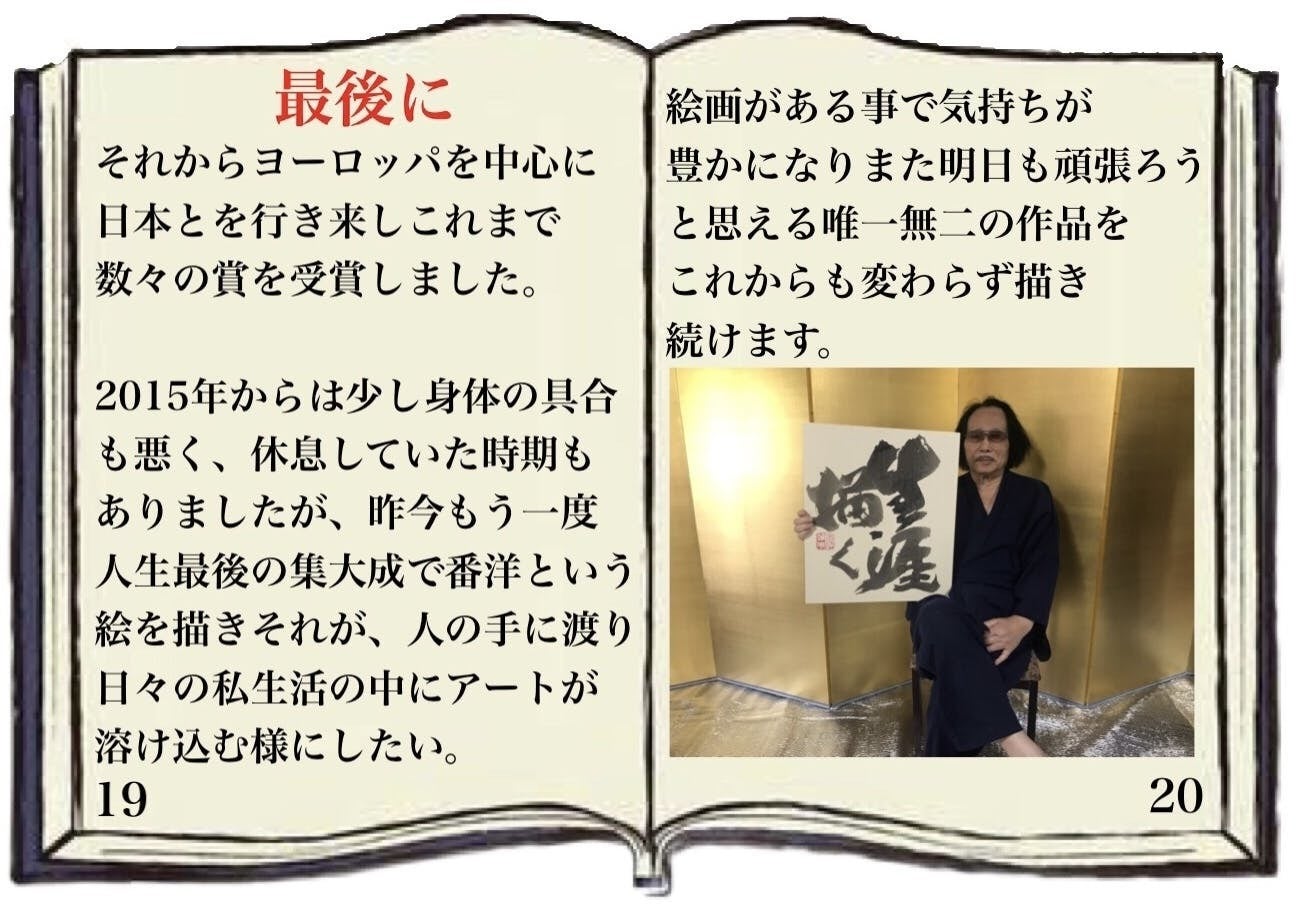 最後に
それからヨーロッパを中心に
日本とを行き来しこれまで
数々の賞を受賞しました。
2015年からは少し身体の具合
も悪く、休息していた時期も
ありましたが、昨今もう一度
人生最後の集大成で番洋という
絵を描きそれが、人の手に渡り
日々の私生活の中にアートが
溶け込む様にしたい。
19
絵画がある事で気持ちが
豊かになりまた明日も頑張ろう
と思える唯一無二の作品を
これからも変わらず描き
続けます。
生涯
描く
20